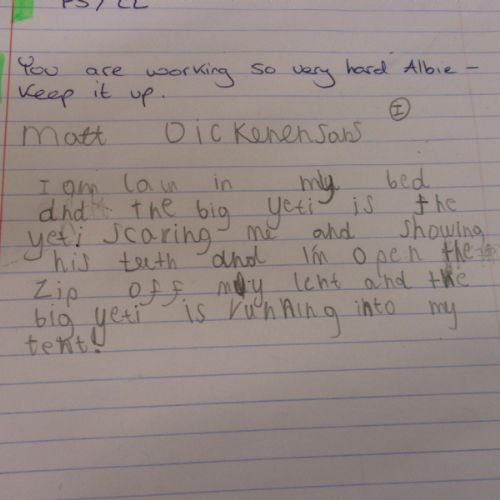 PS / CL
You are working so very hard Albie -
keep it up.
I
Matt Dickenensans
I am law in my bed
and the big yeti is the
yeti scaring me and showing
his teeth and I'm open the
zip off my tent and the
big yeti is running into my
tent!